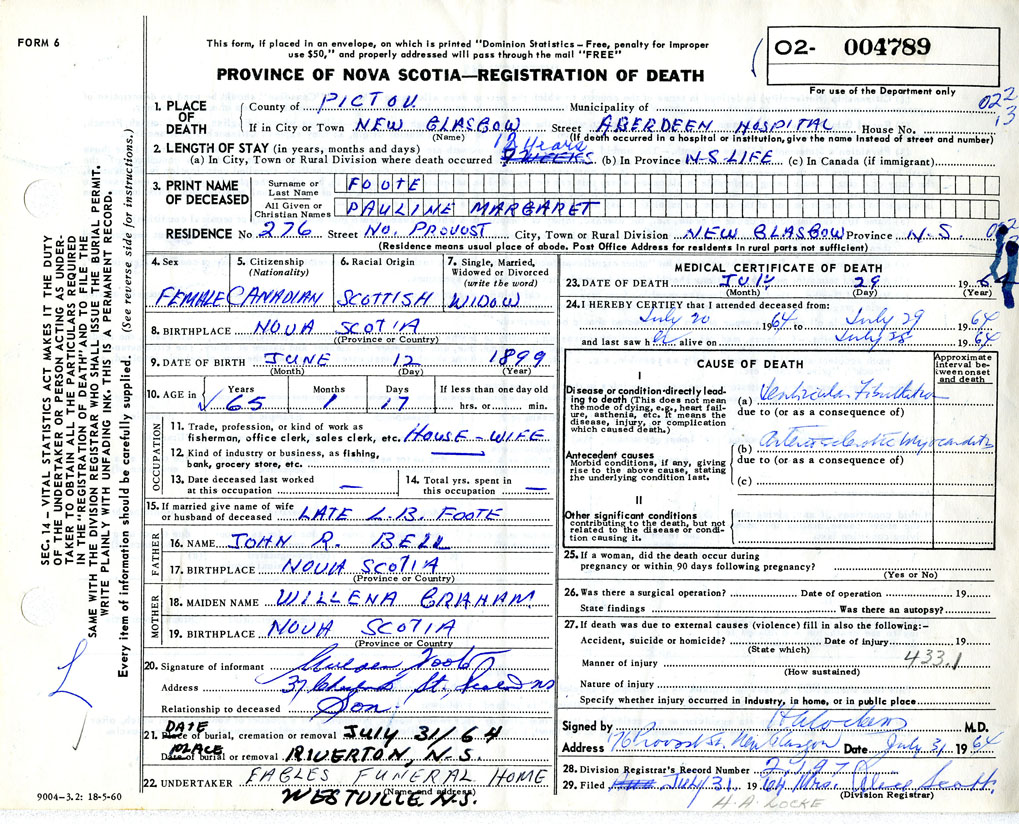 FORM 6
This form, if placed in an envelope, on which is printed "Dominion Statistics – Free, penalty for improper
use $50," and properly addressed will pass through the mail "FREE"
PROVINCE OF NOVA SCOTIA—REGISTRATION OF DEATH
O2- 004789
For use of the Department only
022
13
SEC. 14 – VITAL STATISTICS ACT MAKES IT THE DUTY
OF THE UNDERTAKER OR PERSON ACTING AS UNDER-
TAKER TO OBTAIN ALL THE PARTICULARS REQUIRED
IN THE "REGISTRATION OF DEATH" AND TO FILE THE
SAME WITH THE DIVISION REGISTRAR WHO SHALL ISSUE THE BURIAL PERMIT.
WRITE PLAINLY WITH UNFADING INK. THIS IS A PERMANENT RECORD.
Every item of information should be carefully supplied. (See reverse side for instructions.)
1. PLACE OF DEATH
County of PICTOU Municipality of
If in City or Town NEW GLASGOW Street ABERDEEN HOSPITAL House No.
(Name) (If death occurred in a hospital or institution, give the name instead of street and number)
2. LENGTH OF STAY (in years, months and days) 12 Years
(a) In City, Town or Rural Division where death occurred WEEKS (b) In Province N-S LIFE (c) In Canada (if immigrant)
3. PRINT NAME OF DECEASED
Surname or Last Name FOOTE
All Given or Christian Names PAULINE MARGARET
RESIDENCE No 276 Street NO. PROVOST City, Town or Rural Division NEW GLASGOW Province N.S.
(Residence means usual place of abode. Post Office Address for residents in rural parts not sufficient)
4. Sex FEMALE
5. Citizenship (Nationality) CANADIAN
6. Racial Origin SCOTTISH
7. Single, Married, Widowed or Divorced (write the word) WIDOW
8. BIRTHPLACE NOVA SCOTIA
(Province or Country)
9. DATE OF BIRTH JUNE 12 1899
(Month) (Day) (Year)
10. AGE in Years Months Days If less than one day old
65 1 17 hrs. or min.
OCCUPATION
11. Trade, profession, or kind of work as
fisherman, office clerk, sales clerk, etc. HOUSE-WIFE
12. Kind of industry or business, as fishing,
bank, grocery store, etc. —
13. Date deceased last worked
at this occupation —
14. Total yrs. spent in
this occupation —
15. If married give name of wife
or husband of deceased LATE L.B. FOOTE
FATHER
16. NAME JOHN R. BELL
17. BIRTHPLACE NOVA SCOTIA
(Province or Country)
MOTHER
18. MAIDEN NAME WILLENA GRAHAM
19. BIRTHPLACE NOVA SCOTIA
(Province or Country)
20. Signature of informant Foote
Address 37 St.
Relationship to deceased Son
DATE
21. Place of burial, cremation or removal JULY 31/64
PLACE
Date of burial or removal RIVERTON, N.S.
22. UNDERTAKER EABLES FUNERAL HOME
(Name and address)
WESTVILLE N.S.
9004-3.2: 18-5-60
MEDICAL CERTIFICATE OF DEATH
23. DATE OF DEATH JULY 29 1964
(Month) (Day) (Year)
24. I HEREBY CERTIFY that I attended deceased from:
July 20 1964 to July 29 1964
and last saw her alive on July 28 1964
CAUSE OF DEATH
Approximate interval between onset and death
I
Disease or condition directly lead-
ing to death (This does not mean
the mode of dying, e.g., heart fail-
ure, asthenia, etc. It means the
disease, injury, or complication
which caused death.)
(a) Ventricular Fibrillation
due to (or as a consequence of)
Antecedent causes
Morbid conditions, if any, giving
rise to the above cause, stating
the underlying condition last.
(b) Arteriosclerotic Myocarditis
due to (or as a consequence of)
(c)
II
Other significant conditions
contributing to the death, but not
related to the disease or condi-
tion causing it.
25. If a woman, did the death occur during
pregnancy or within 90 days following pregnancy?
(Yes or No)
26. Was there a surgical operation? Date of operation 19
State findings Was there an autopsy?
27. If death was due to external causes (violence) fill in also the following:–
Accident, suicide or homicide? Date of injury 19
(State which)
433.1
Manner of injury
(How sustained)
Nature of injury
Specify whether injury occurred in industry, in home, or in public place
Signed by M.D.
Address 76 Provost St. New Glasgow Date July 31 1964
28. Division Registrar's Record Number 2197
29. Filed July 31 1964 Mrs. Scott
(Division Registrar)
H.A. LOCKE